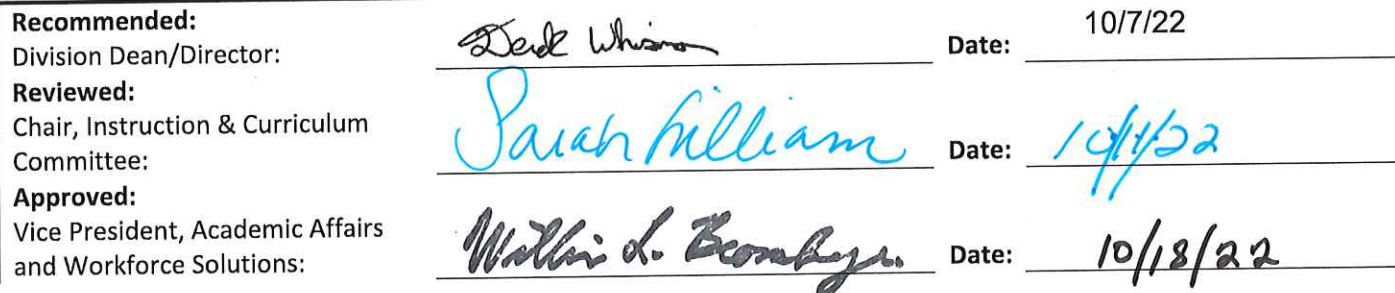 Recommended:
Division Dean/Director: Derek Whisman Date: 10/7/22
Reviewed:
Chair, Instruction & Curriculum
Committee: Sarah Gilliam Date: 10/11/22
Approved:
Vice President, Academic Affairs
and Workforce Solutions: L. Date: 10/18/22